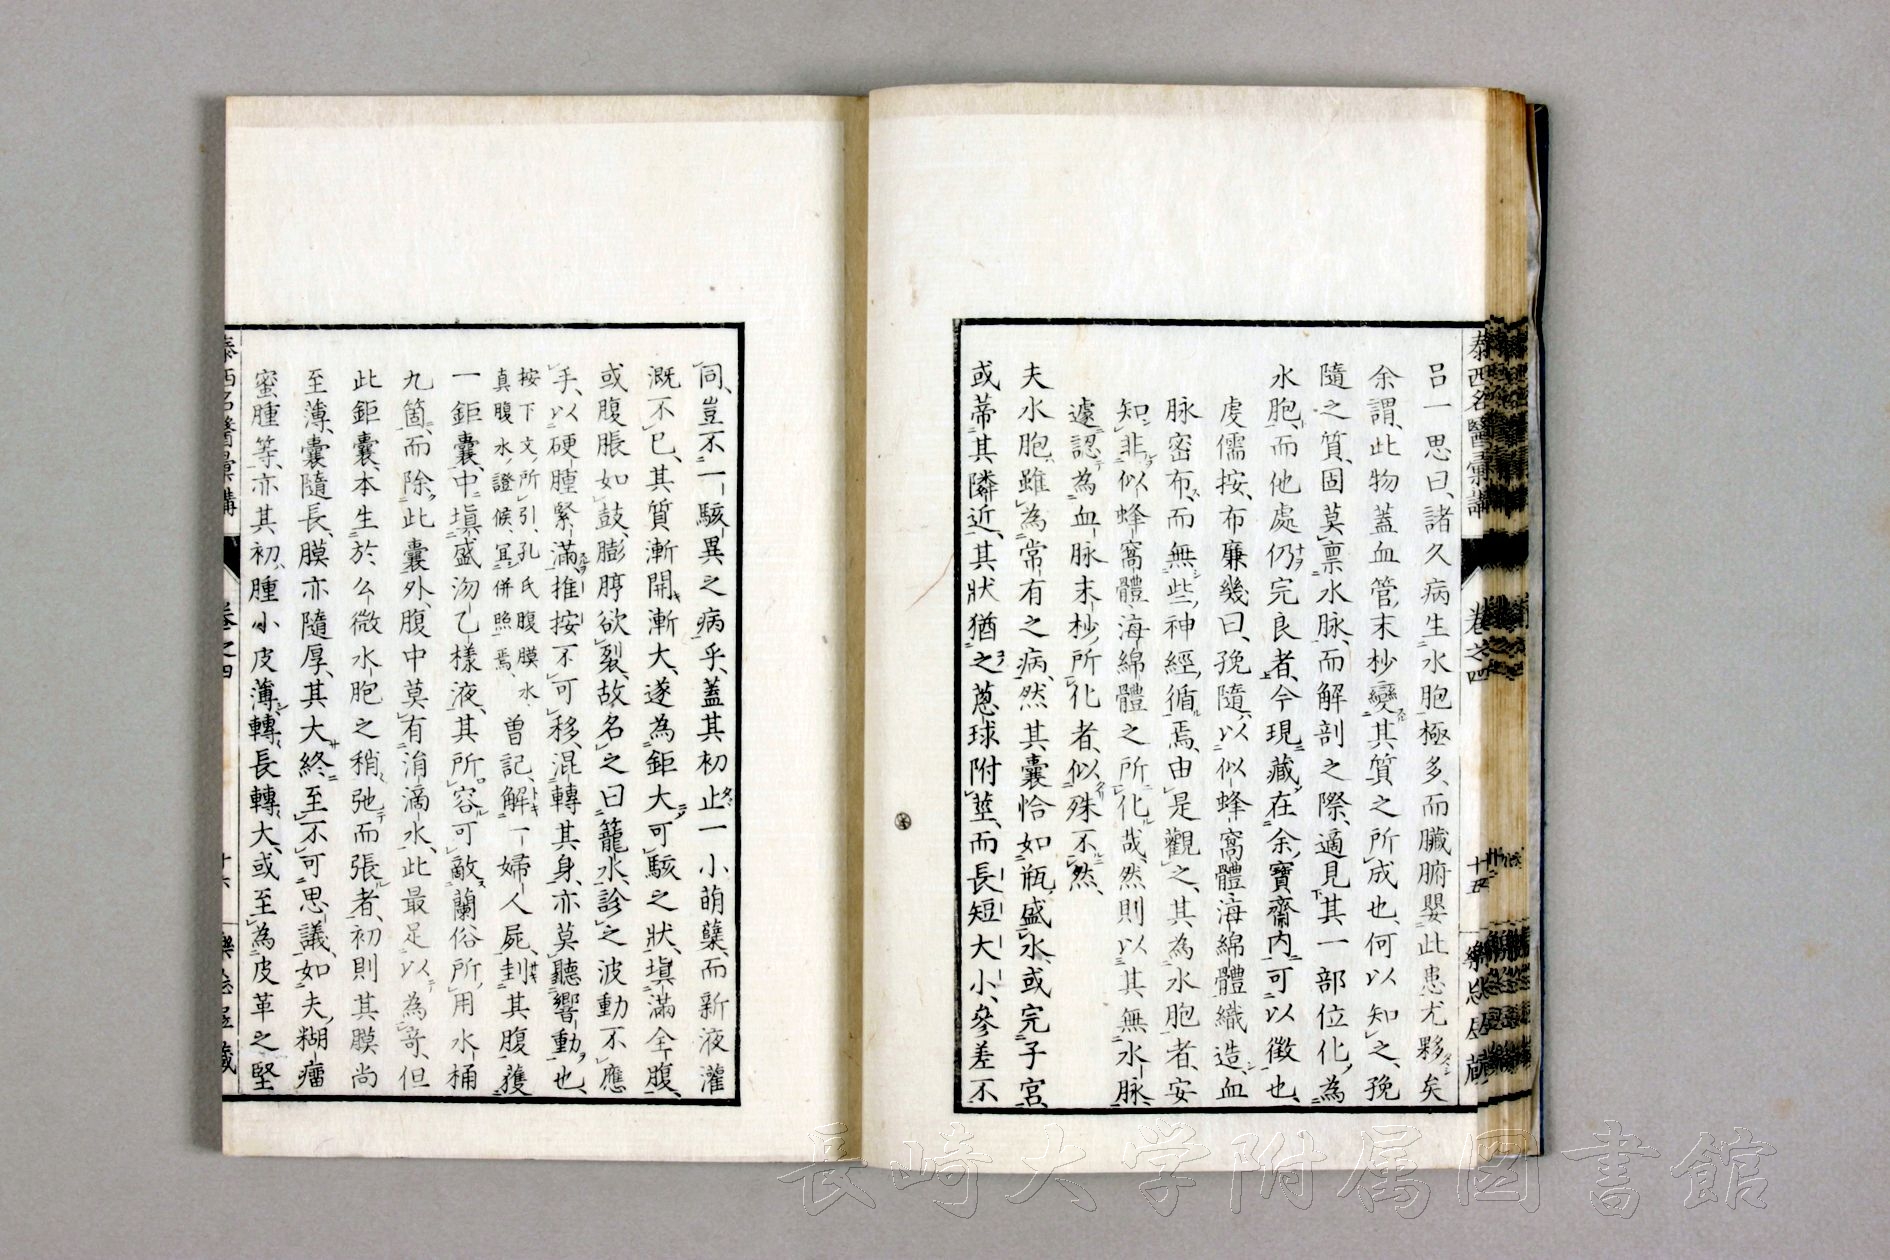 呂一思曰、諸久病生水胞極多、而臟腑嬰此患尤夥矣
余謂、此物蓋血管末杪變其質之所成也、何以知之、挽
隨之質、固莫稟水脉、而解剖之際、適見其一部位化為
水胞、而他處仍完良者、今現藏在余寶齋內、可以徵也、
虞儒按、布廉幾曰、挽隨、以似蜂窩體海綿體織造、血
脉密布、而無些神經循焉、由是觀之、其為水胞者、安
知非似蜂窩體海綿體之所化哉、然則以其無水脉、
遽認為血脉末杪所化者、似殊不然、
夫水胞、雖為常有之病、然其囊恰如瓶盛水、或完子宮、
或蒂其隣近、其狀猶之蔥球附莖、而長短大小、參差不
泰西名醫彙講
卷之四
十五
樂恷居藏
同、豈不一駭異之病乎、蓋其初止一小萌蘖、而新液灌
溉不已、其質漸開漸大、遂為鉅大可駭之狀、塡滿全腹、
或腹脹如鼓、膨脝欲裂、故名之曰籠水、診之波動不應
手、以硬腫緊滿、推按不可移、混轉其身、亦莫聽響動也、
按下文所引、孔氏腹膜水、
真腹水、證候、冝併照焉、
曽記、解一婦人屍、刲其腹、獲
一鉅囊、中塡盛沕乙樣液、其所容可敵蘭俗所用水桶
九箇、而除此囊外、腹中莫有涓滴水、此最足以為竒、但
此鉅囊、本生於幺微水胞之稍弛而張者、初則其膜尚
至薄、囊隨長、膜亦隨厚、其大終至不可思議、如夫糊瘤
蜜腫等、亦其初腫小皮薄、轉長轉大、或至為皮革之堅
泰西名醫彙講
卷之四
十六